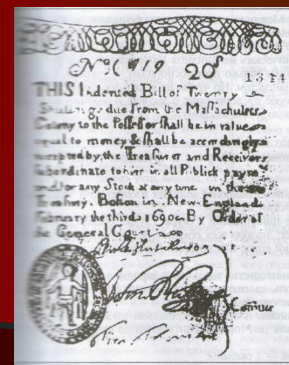 No ( 719 20s
1314
THIS Indented Bill of Twenty
Shillings due from the Massachusets
Colony to the Possessor shall be in value
equal to money & shall be accordingly
accepted by the Treasurer and Receivers
subordinate to him in all Publick paym.ts
and for any Stock at any time in the
Treasury. Boston in New-England
February the third 1690 By Order of
the General Court
Comtee